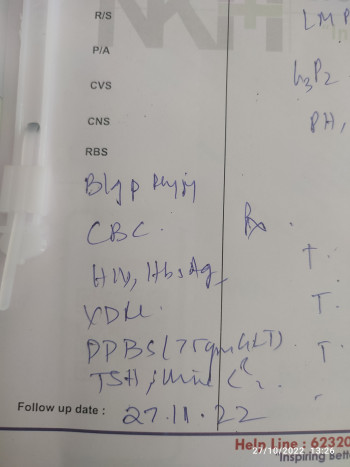 R/S
LMP
P/A
CVS
CNS
PH,
RBS
CBC.
Rx.
HIV, HbsAg,
T.
VDRL.
T.
PPBS (75gm GCT).
T.
TSH, Urine
Follow up date : 27.11.22
27/10/2022 13:26
Help Line : 62320
Inspiring Bett